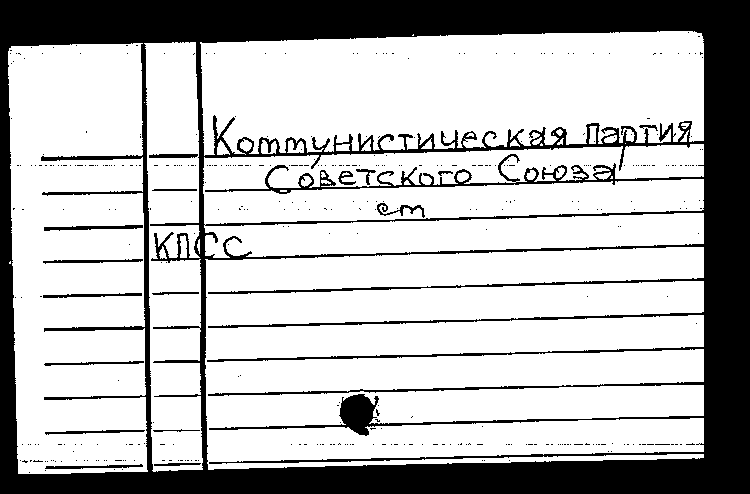 Коммунистическая партия
Советского Союза
см
КПСС